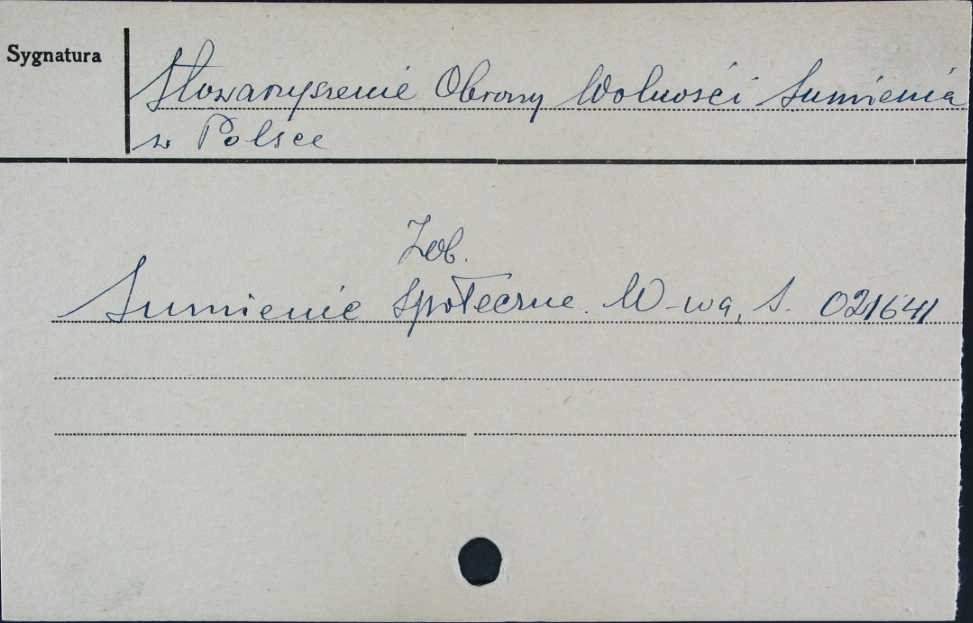 Sygnatura
Stowarzyszenie Obrony Wolności Sumienia
w Polsce
Zob.
Sumienie Społeczne. W-wa, S. 021641